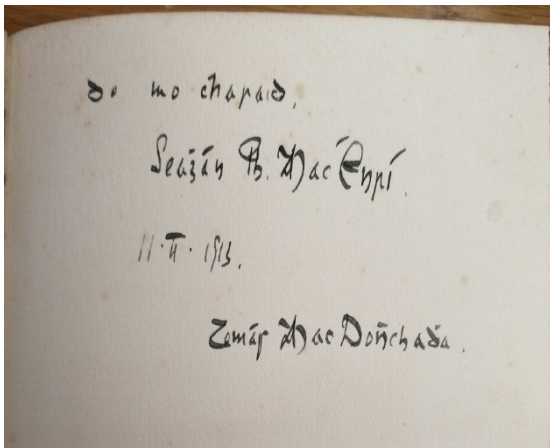 do mo charaid,
Seaġán P. Mac Énrí.
11·II·1913.
Tomás Mac Don̄chaḋa.